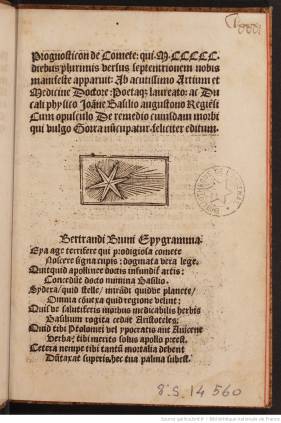 Prognosticon de Comete: qui. M.CCCCC.
diebus plurimis versus septentrionem nobis
manifeste apparuit: Ab acutissimo Artium et
Medicine Doctore: Poetaq; laureato: ac Du
cali physico Joāne Basilio augustono
Cum opusculo De remedio cuiusdam morbi
qui vulgo nuncupatur. feliciter editum.
Bertrandi Epygramma.
Eya age terrifere qui prodigiosa comete
Noscere signa cupis: dogmata vera lege.
Quicquid apollinee doctis infundit artis:
Concedit docto numina Basilio.
Sydera/quid stelle/mirādi quidve planete/
Omnia regione velint:
Quisve salutiferis morbus medicabilis herbis
Basilium rogita cedat Aristoteles:
Quid tibi Ptolomei vel ypocratis aut Avicene
Verba: tibi merito solus apollo preest.
Cetera nempe tibi tantū mortalia debent
superis/hec tua palma subest.
8°S. 14 560
Source gallica.bnf.fr / Bibliothèque nationale de France